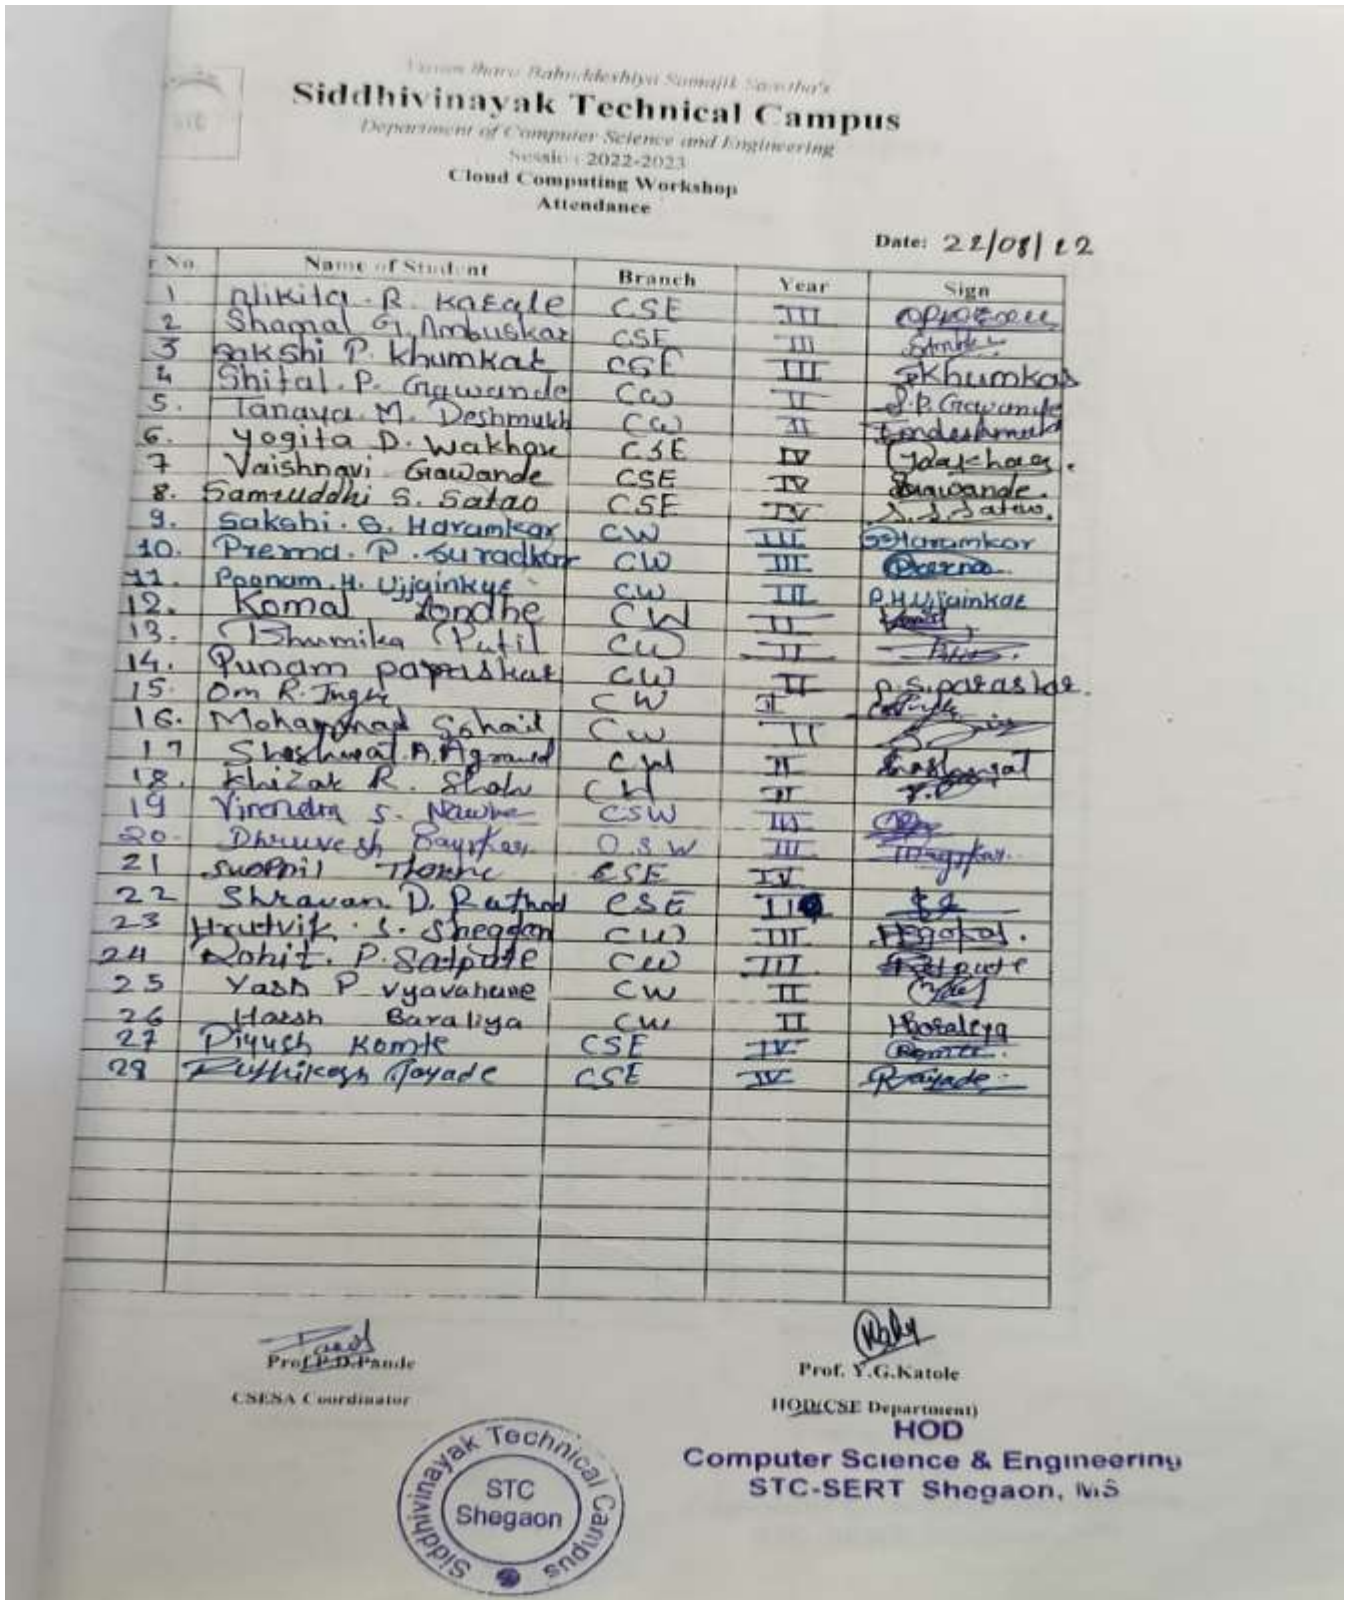 Siddhivinayak Technical Campus
Department of Computer Science and Engineering
Session : 2022-2023
Cloud Computing Workshop
Attendance
Date: 22/08/22
r No. Name of Student Branch Year Sign
1 Nikita R. CSE III
2 Shamal G. Ambuskar CSE III
3 Sakshi P. Khumkar CSE III Skhumkar
4 Shital. P. Gawande CW II S.P. Gawande
5. Tanaya M. Deshmukh CW II Tmdeshmukh
6. Yogita D. Wakhare CSE IV
7 Vaishnavi Gawande CSE IV
8. Samruddhi S. Satao CSE IV S. S. Satao.
9. Sakshi. G. Haramkar CW III
10. Prerna. P. Suradkar CW III
11. Poonam. H. Ujjainkar CW III P.H.Ujjainkar
12. Komal Londhe CW II
13. Bhumika Patil CW II
14. Punam paraskar CW II P.S.paraskar.
15. Om R. Ingle CW II
16. Mohammad Sohail CW II
17 Shashwat A. Agrawal CW II
18. Khizar R. Shah CW II
19 Virendra S. CSW III
20. Dhruvesh CSW III
21 Swapnil CSE IV
22 Shravan. D. Rathod CSE III
23 Hrutvik. S. CW III
24 Rohit. P. Satpute CW III
25 Yash P Vyavahare CW II
26 Harsh Baraliya CW II
27 Piyush Komte CSE IV
28 Rushikesh Tayade CSE IV
Prof.P.D.Pande Prof. Y.G.Katole
CSESA Coordinator HOD(CSE Department)
HOD
Computer Science & Engineering
STC-SERT Shegaon, MS
Siddhivinayak Technical Campus
STC
Shegaon